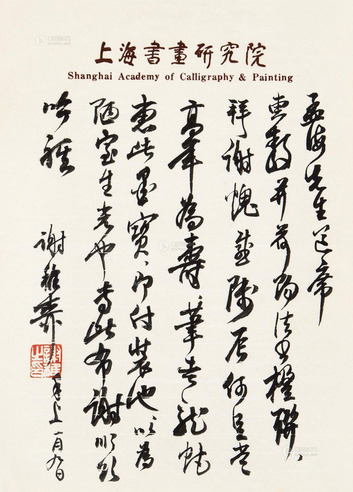 上海書畫研究院
Shanghai Academy of Calligraphy & Painting
孟海先生道席
惠教并荷賜法書楹聯、
拜謝愧感
高年為壽筆走龍蛇
惠此墨寶、即付裝池以為
陋室生光也專此布謝順頌
吟祺
謝稚柳
手上 一月九日